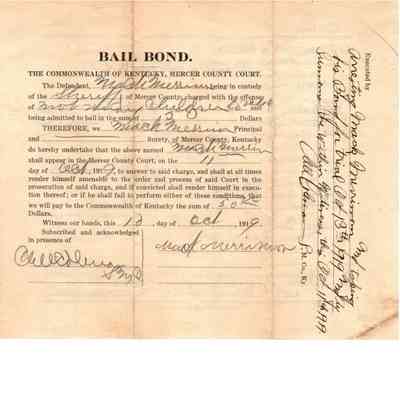 BAIL BOND.
THE COMMONWEALTH OF KENTUCKY, MERCER COUNTY COURT.
The Defendant, Mack Merriman being in custody
of the Sheriff of Mercer County, charged with the offense
of not Children and
being admitted to bail in the sum of 50 Dollars
THEREFORE, we Mack Merriman Principal
and Surety, of Mercer County, Kentucky
do hereby undertake that the above named
shall appear in the Mercer County Court, on the 11
day of Oct 1919, to answer to said charge, and shall at all times
render himself amenable to the order and process of said Court in the
prosecution of said charge, and if convicted shall render himself in execu-
tion thereof; or if he shall fail to perform either of these conditions, that
we will pay to the Commonwealth of Kentucky the sum of 50
Dollars.
Witness our hands, this 13 day of Oct 1919.
Subscribed and acknowledged
in presence of
Mack Merriman
Executed by
arresting Mack Merriman and taking
his Bond for Trial Oct 13th 1919 and by
Oct 11th 1919
M. Co., Ky.